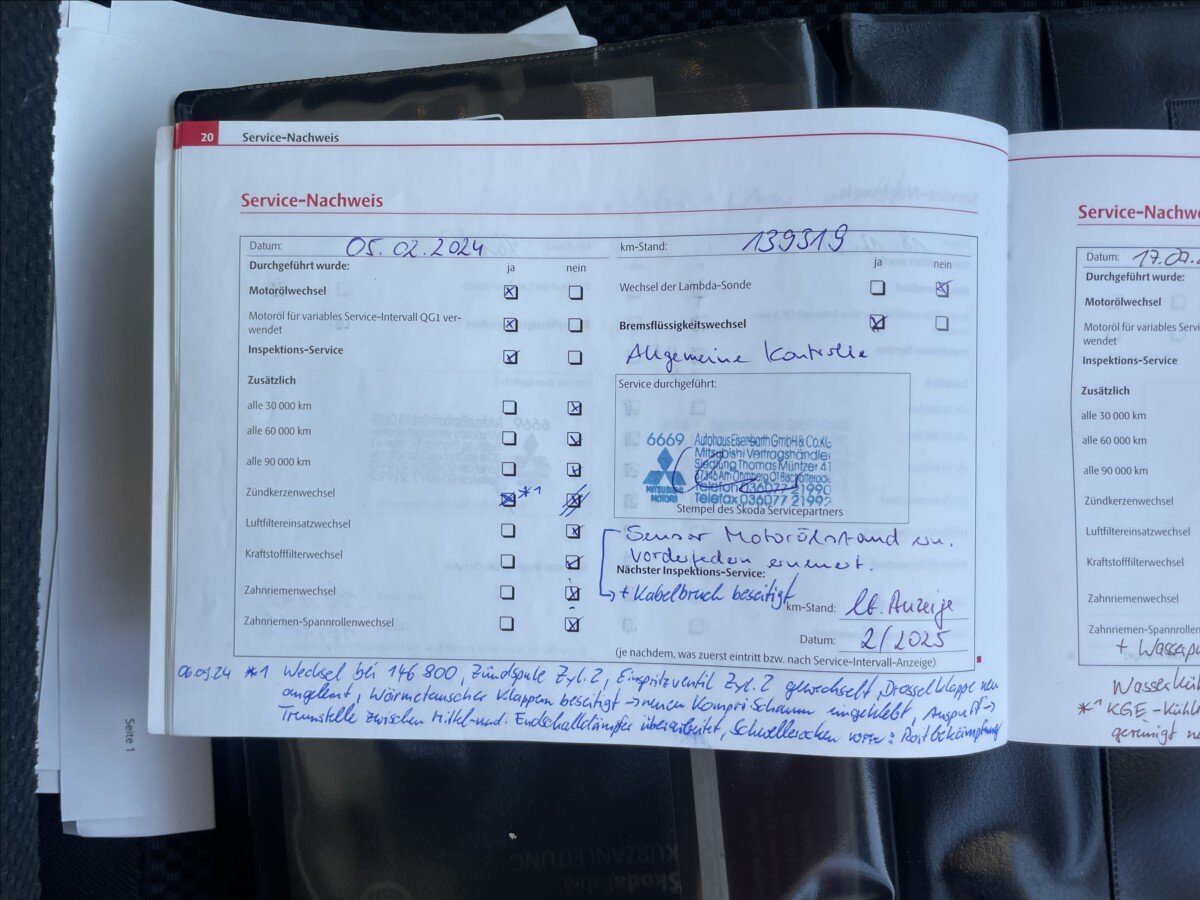 20 Service-Nachweis
Service-Nachweis
Datum: 05.02.2024 km-Stand: 139319
Durchgeführt wurde: ja nein
ja nein
Motorölwechsel
Wechsel der Lambda-Sonde
Motoröl für variables Service-Intervall QG1 ver-
wendet
Bremsflüssigkeitswechsel
Inspektions-Service
Allgemeine Kontrolle
Zusätzlich
Service durchgeführt:
alle 30 000 km
alle 60 000 km
alle 90 000 km
Zündkerzenwechsel *1
Luftfiltereinsatzwechsel
Kraftstofffilterwechsel
Zahnriemenwechsel
Zahnriemen-Spannrollenwechsel
6669 Autohaus Eisenbarth GmbH & Co.KG
Mitsubishi Vertragshändler
Siedlung Thomas Müntzer 41
MITSUBISHI
MOTORS
Telefon 036077 21990
Telefax 036077 21992
Stempel des Skoda Servicepartners
Sensor Motorölstand ern.
Vorderfedern erneuert.
Nächster Inspektions-Service:
+ Kabelbruch beseitigt
km-Stand: lt. Anzeige
Datum: 2/2025
(je nachdem, was zuerst eintritt bzw. nach Service-Intervall-Anzeige)
06.09.24 *1 Wechsel bei 146 800, Zündspule Zyl. 2, Einspritzventil Zyl. 2 gewechselt, Drosselklappe neu
angelernt, Wärmetauscher Klappern beseitigt → neuen Kompri Schaum eingeklebt, Auspuff →
Trennstelle zwischen Mittel- und Endschalldämpfer überarbeitet, Schwellerecken vorne: Rostbekämpfung
Service-Nachwe
Datum: 17.0
Durchgeführt wurde:
Motorölwechsel
Motoröl für variables Service
wendet
Inspektions-Service
Zusätzlich
alle 30 000 km
alle 60 000 km
alle 90 000 km
Zündkerzenwechsel
Luftfiltereinsatzwechsel
Kraftstofffilterwechsel
Zahnriemenwechsel
Zahnriemen-Spannrollen
+ Wasserpu
Wasserküh
*1 KGE-Kühl
gereinigt
Seite 1
SkodaFabia
KURZANLEITUNG